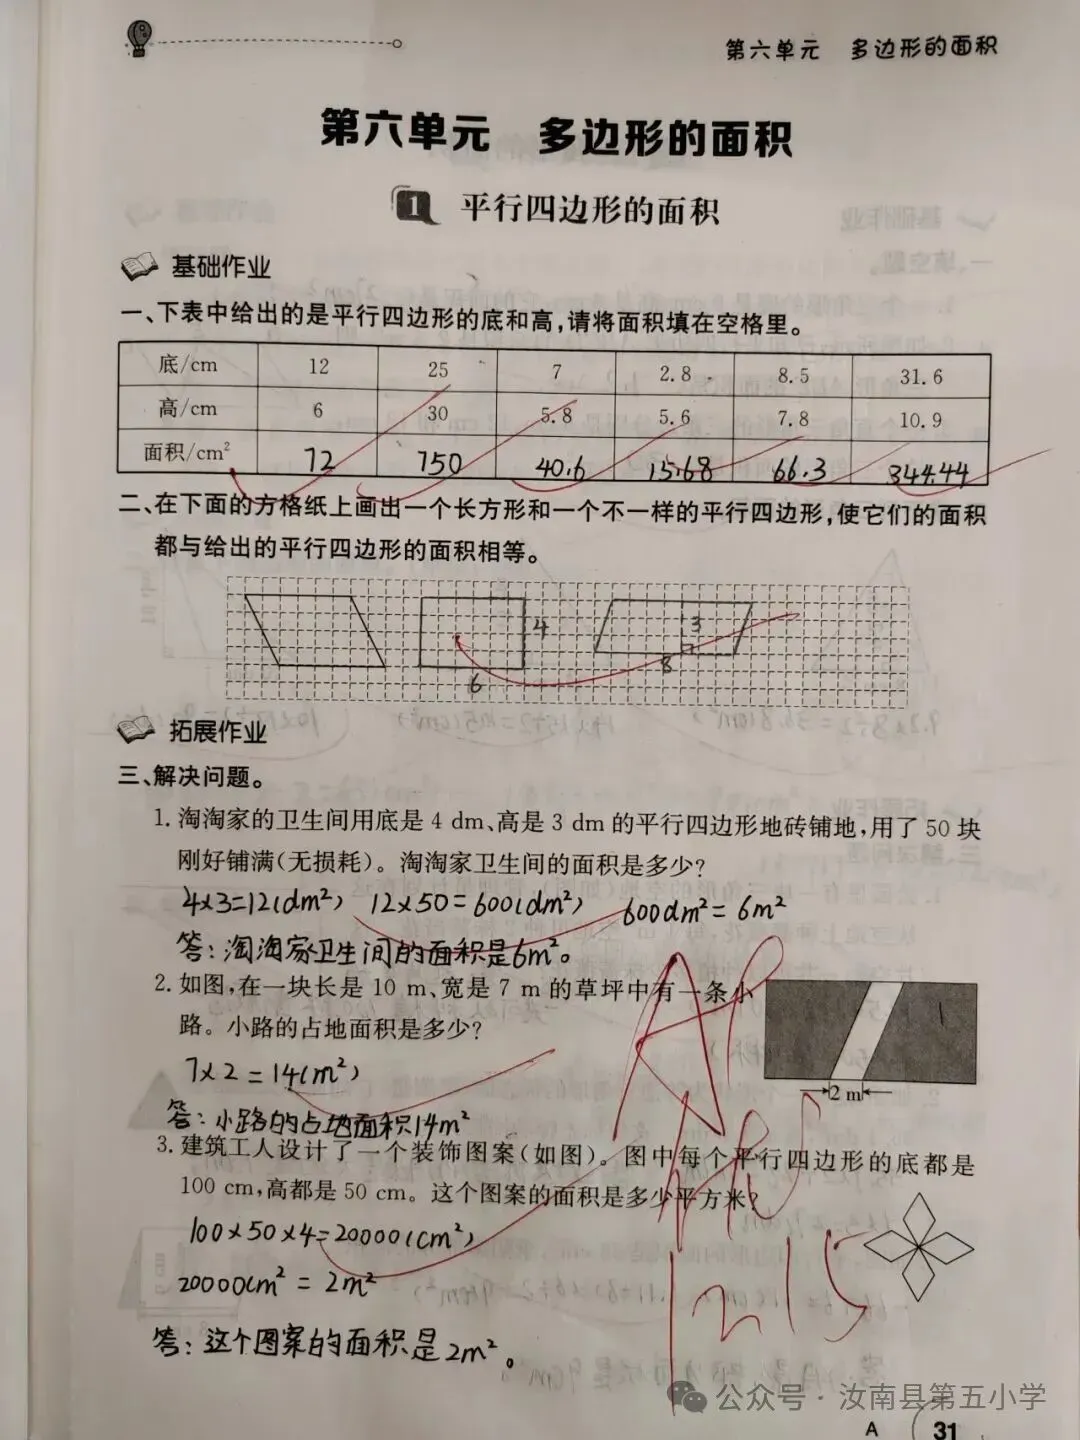 第六单元 多边形的面积
第六单元 多边形的面积
1 平行四边形的面积
基础作业
一、下表中给出的是平行四边形的底和高,请将面积填在空格里。
底/cm 12 25 7 2.8 8.5 31.6
高/cm 6 30 5.8 5.6 7.8 10.9
面积/cm² 72 750 40.6 15.68 66.3 344.44
二、在下面的方格纸上画出一个长方形和一个不一样的平行四边形,使它们的面积
都与给出的平行四边形的面积相等。
4
3
6
8
拓展作业
三、解决问题。
1. 淘淘家的卫生间用底是 4 dm、高是 3 dm 的平行四边形地砖铺地,用了 50 块
刚好铺满(无损耗)。淘淘家卫生间的面积是多少?
4×3=12(dm²) 12×50=600(dm²) 600dm²=6m²
答:淘淘家卫生间的面积是6m²。
2. 如图,在一块长是 10 m、宽是 7 m 的草坪中有一条小
路。小路的占地面积是多少?
7×2=14(m²)
2 m
答:小路的占地面积14m²
3. 建筑工人设计了一个装饰图案(如图)。图中每个平行四边形的底都是
100 cm,高都是 50 cm。这个图案的面积是多少平方米?
100×50×4=20000(cm²)
20000cm²=2m²
答:这个图案的面积是2m²。
公众号·汝南县第五小学
A 31